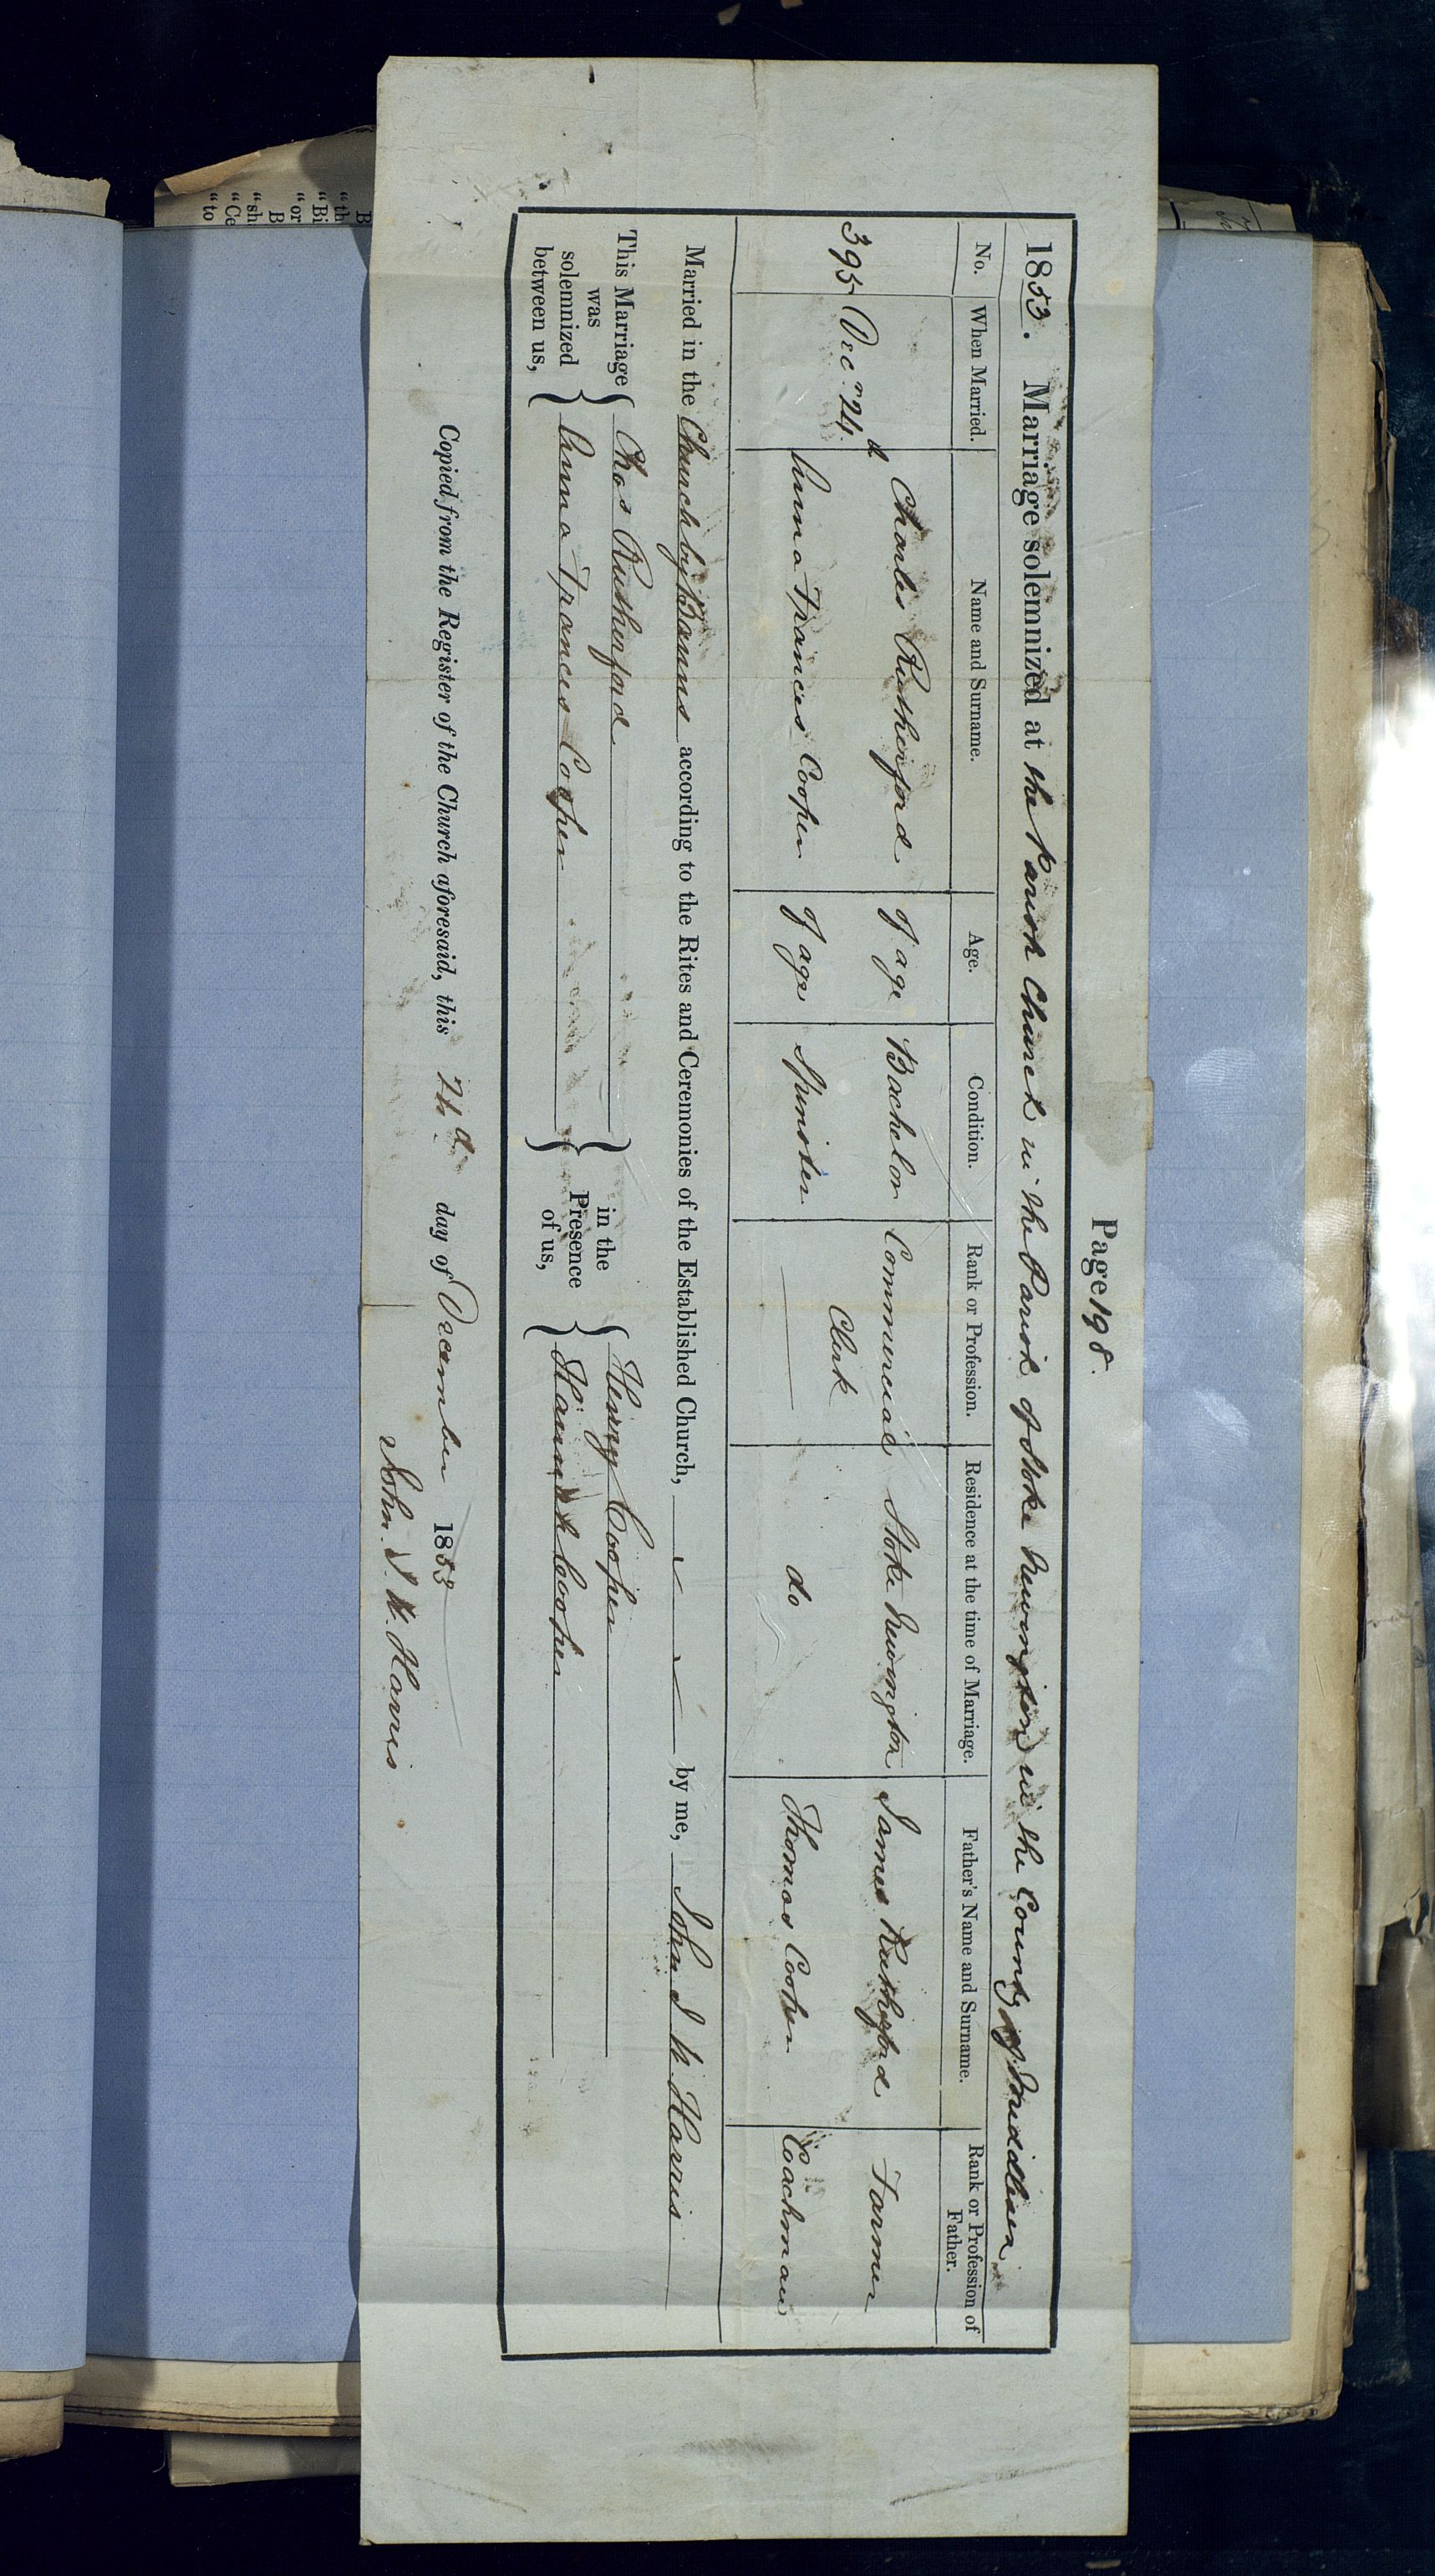 Page 198.
1853. Marriage solemnized at the Parish Church in the Parish of Stoke Newington in the County of Middlesex
No. When Married. Name and Surname. Age. Condition. Rank or Profession. Residence at the time of Marriage. Father's Name and Surname. Rank or Profession of Father.
Charles Rutherford Of age Bachelor Commercial Clerk Stoke Newington James Rutherford Farmer
395 Decr 24th
Anna Frances Cooper Of age Spinster do Thomas Cooper Coachman
Married in the Church by Banns according to the Rites and Ceremonies of the Established Church, by me, John I W. Harris
This Marriage was solemnized between us, Chas Rutherford in the Presence of us, Henry Cooper
Anna Frances Cooper Hannah Cooper
Copied from the Register of the Church aforesaid, this day of December 1853
John. I. W. Harris
B
"th
"Bi
"or
B
"sh
"Ce
"to